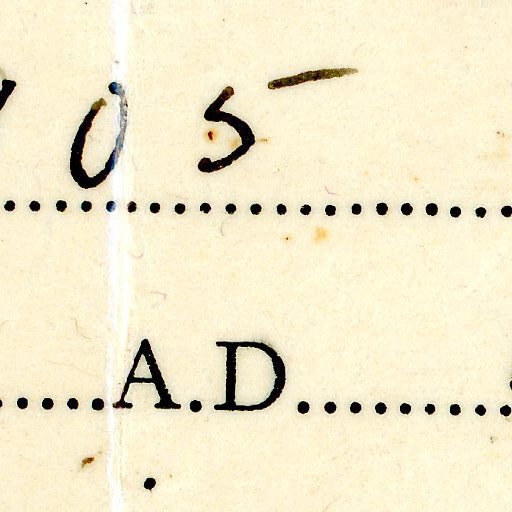 05
A.D